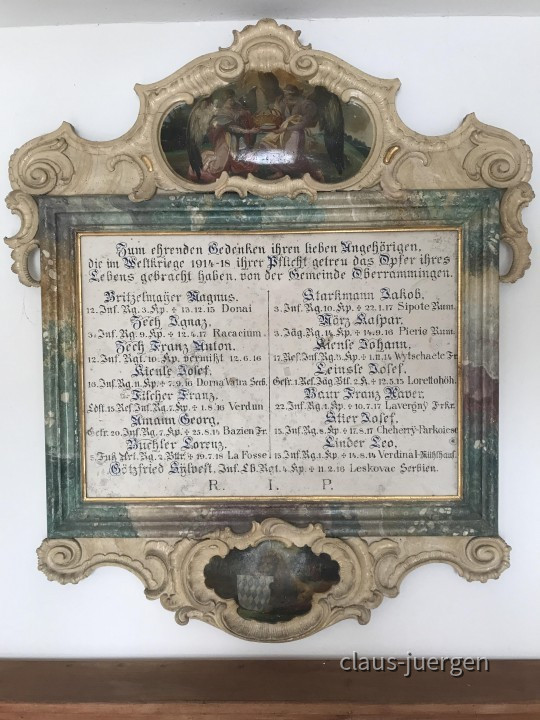 Zum ehrenden Gedenken ihren lieben Angehörigen,
die im Weltkriege 1914-18 ihrer Pflicht getreu das Opfer ihres
Lebens gebracht haben, von der Gemeinde Oberrammingen.
Britzelmayer Magnus.
12. Inf. Rg. 3. Kp. + 13.12.15 Donai
Zech Ignaz,
3. Inf. Rg. 9. Kp. + 12.4.17 Racacium
Zech Franz Anton.
12. Inf. Rgt. 10. Kp. vermißt 12.6.16
Kienle Josef.
Inf. Rg. 11. Kp. + 7.9.16 Dorna Vatra
Filcher Franz.
Ldst. 15. Res. Inf. Rg. 7. Kp. + 1.8.16 Verdun
Amann Georg,
Gefr. 20. Inf. Rg. 7. Kp. + 25.8.14 Bazien Fr.
Büchler Lorenz,
Fuß Art. Rg. 2. Bttr. + 19.7.18 La Fosse
Starkmann Jakob,
3. Inf. Rg. 10. Kp. + 22.1.17 Sipote Rum.
März Kaspar.
3. Jäg. Rg. 14. Kp. + 14.9.16 Pierie Rum.
Kienle Johann.
17. Res. Inf. Rg. 3. Kp. + 1.11.14 Wytschaete Fr.
Leinsle Josef.
Gefr. 1. Res. Jäg. Btl. 2. K. + 12.5.15 Lorettohöh.
Baur Franz Xaver.
22. Inf. Rg. 1. Kp. + 10.7.17 Lavergny Frkr.
Stier Josef.
15. Inf. Rg. 8. Kp. + 17.9.17 Cheherry-
Linder Leo,
15. Inf. Rg. 1. Kp. + 14.8.14 Verdinal-
Götzfried Sylvest. Inf. Lb. Rgt. 4. Kp. + 11.2.16 Leskovac Serbien.
R. I. P.
claus-juergen